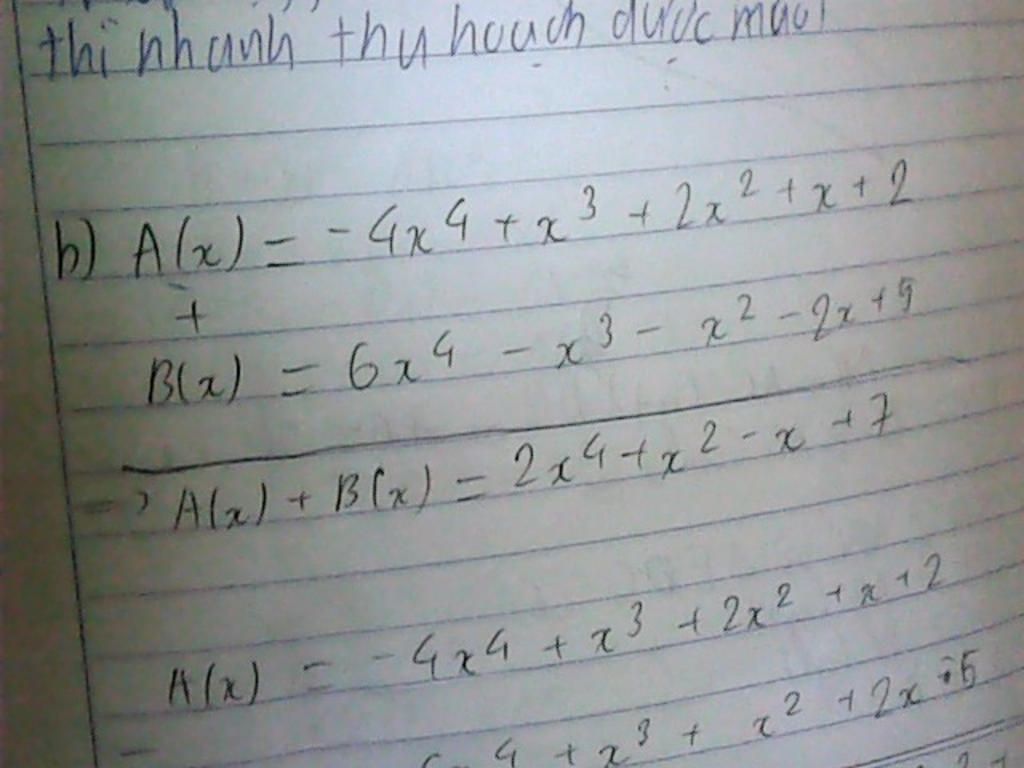 thì nhanh thu hoạch được
b) A(x) = -4x4 + x3 + 2x2 + x + 2
+
B(x) = 6x4 - x3 - x2 - 2x + 5
=> A(x) + B(x) = 2x4 + x2 - x + 7
A(x) = -4x4 + x3 + 2x2 + x + 2
-
4 + x3 + x2 + 2x